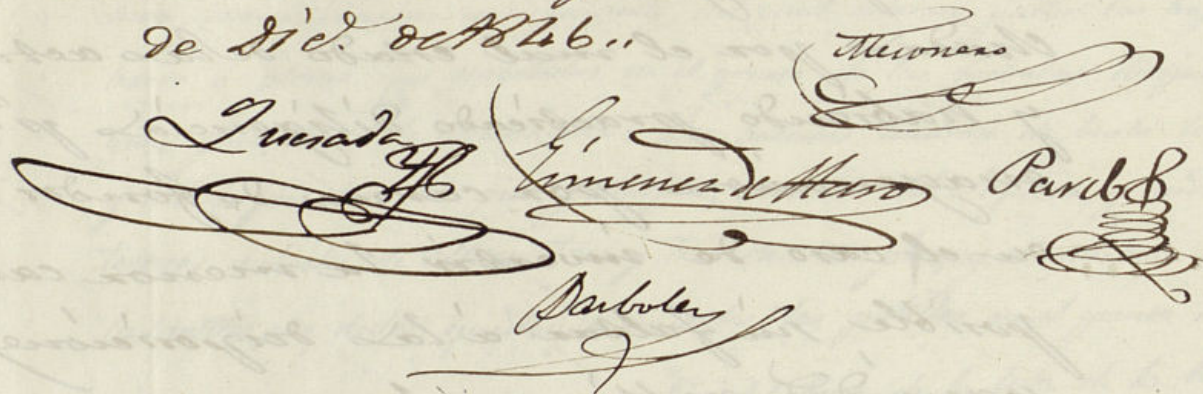 de Dic.e de 1846..
Mesonero
Quesada
Gimenez de Haro
Barbolez